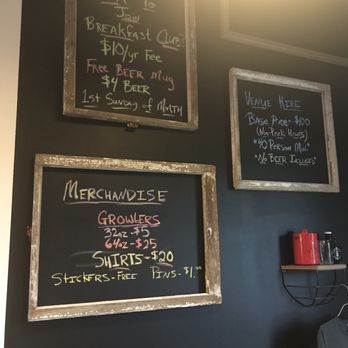 To
Join
Breakfast Club!
$10/yr Fee
Free Beer Mug
$4 Beer
1st Sunday of Month
Venue Hire
Base Price - $100
(Non-Peak Hours)
*40 Person Max*
*No Beer Included*
Merchandise
Growlers
32oz - $5
64oz - $25
Shirts - $20
Stickers - Free Pins - $1.00